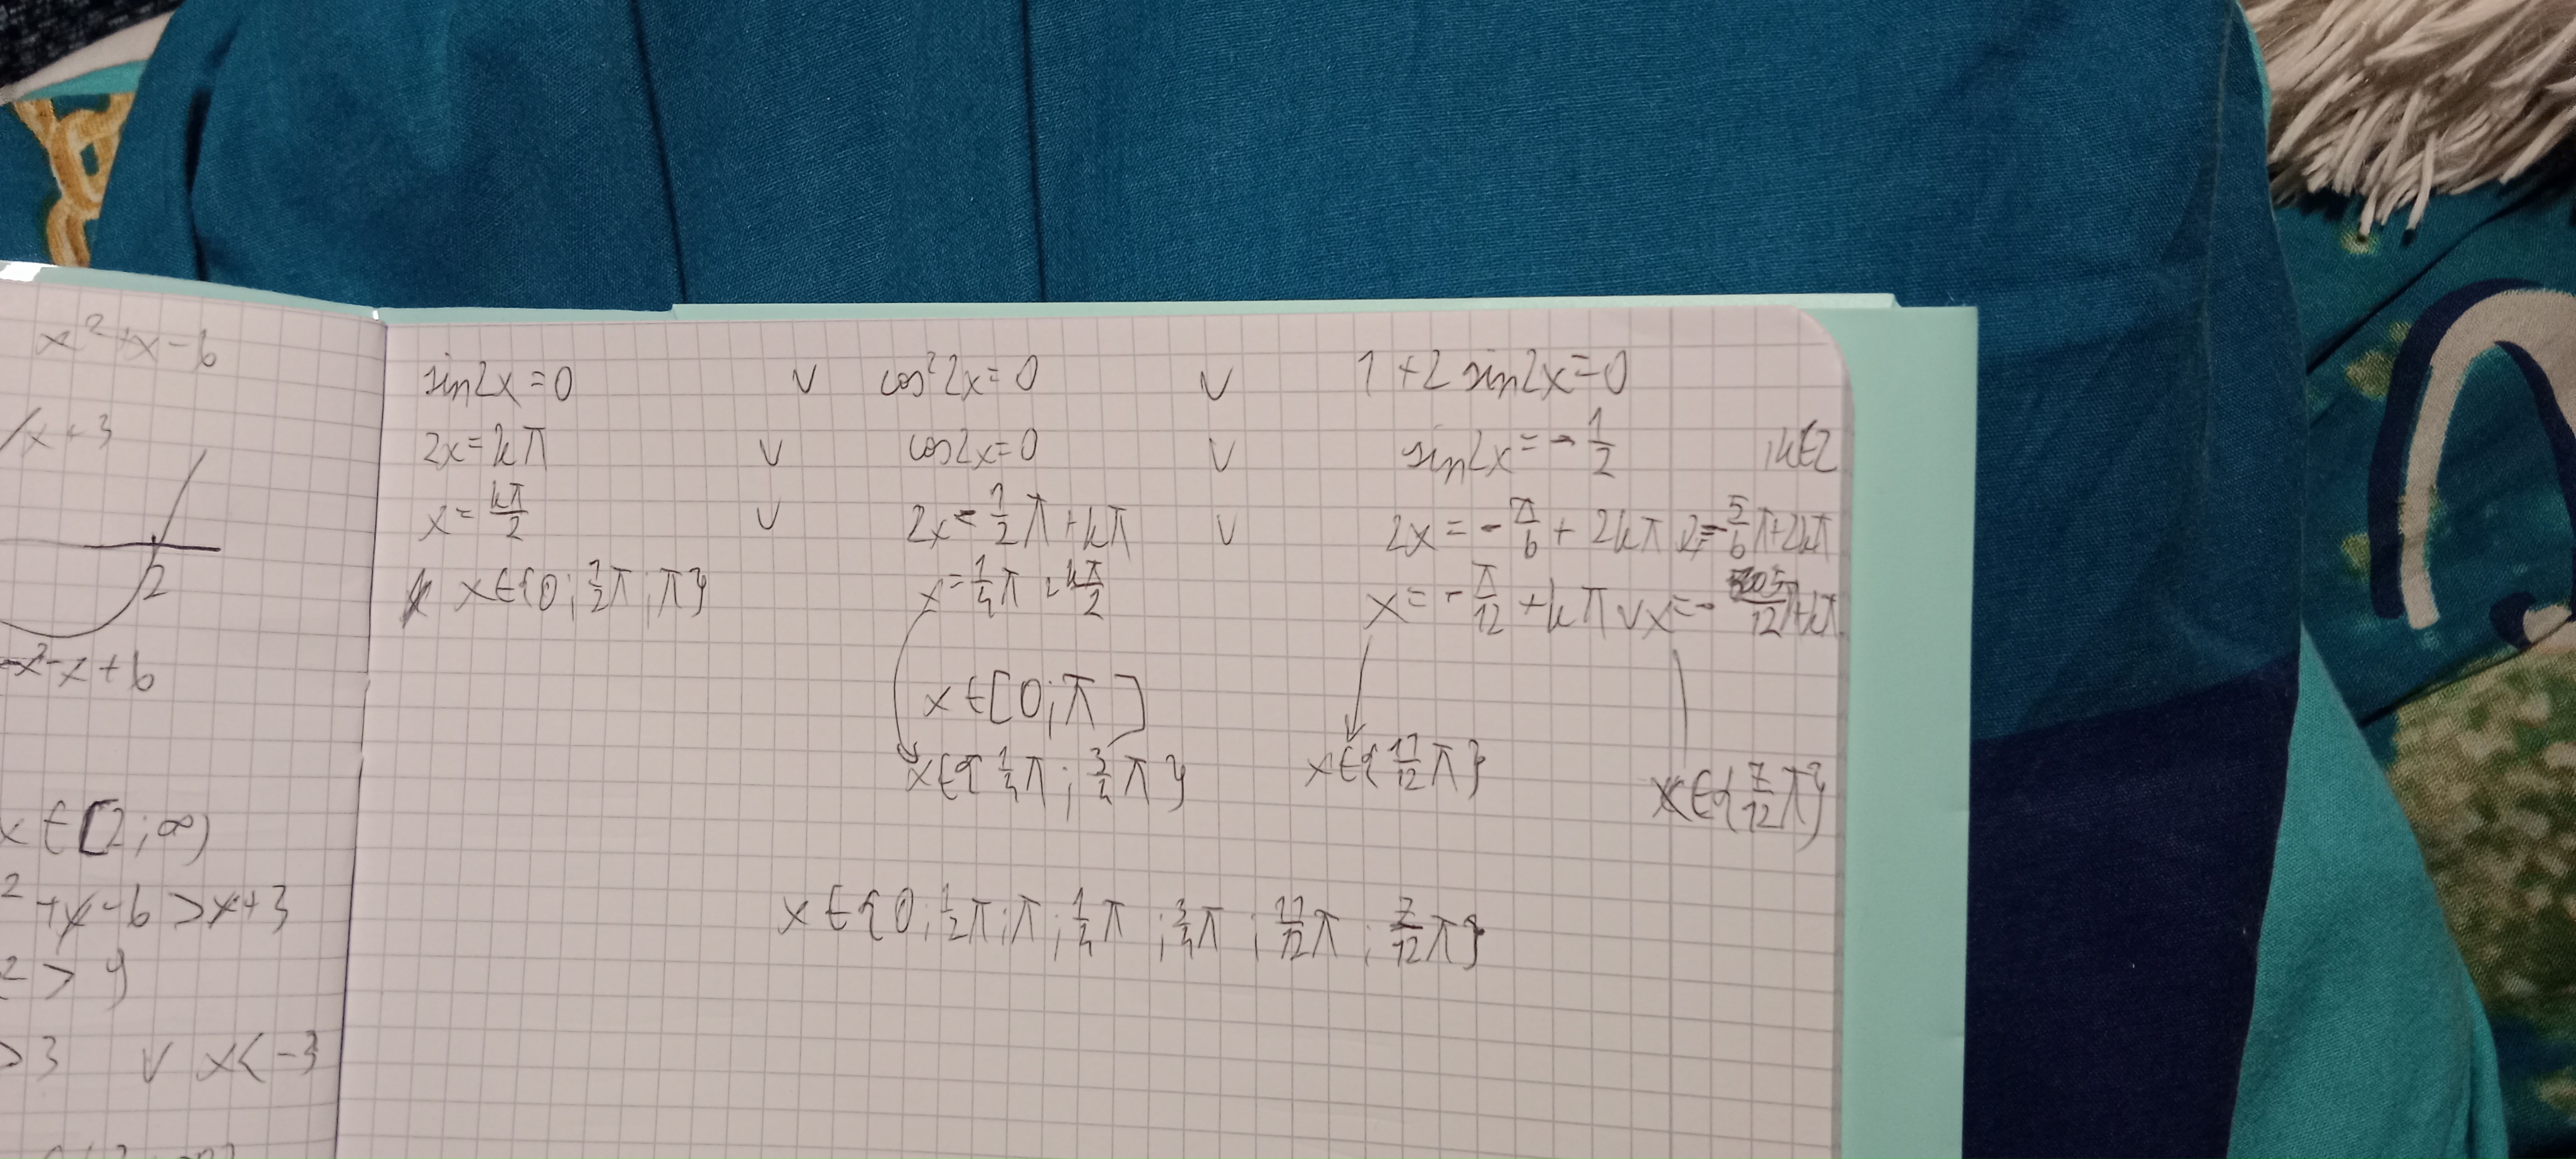 x²+x-6
/x+3
2
-x²-x+6
x∈[2;∞)
²+x-6>x+3
² > 9
>3 ∨ x<-3
sin2x=0 ∨ cos²2x=0 ∨ 1+2sin2x=0
2x=kπ ∨ cos2x=0 ∨ sin2x=-1/2 ,k∈Z
x=kπ/2 ∨ 2x=1/2π+kπ ∨ 2x=-π/6+2kπ 2x=-5/6π+2kπ
x∈{0;1/2π;π} x=1/4π+kπ/2 x=-π/12+kπ ∨ x=-5/12π+kπ
x∈[0;π]
x∈{1/4π;3/4π} x∈{11/12π} x∈{7/12π}
x∈{0;1/2π;π;1/4π;3/4π;11/12π;7/12π}